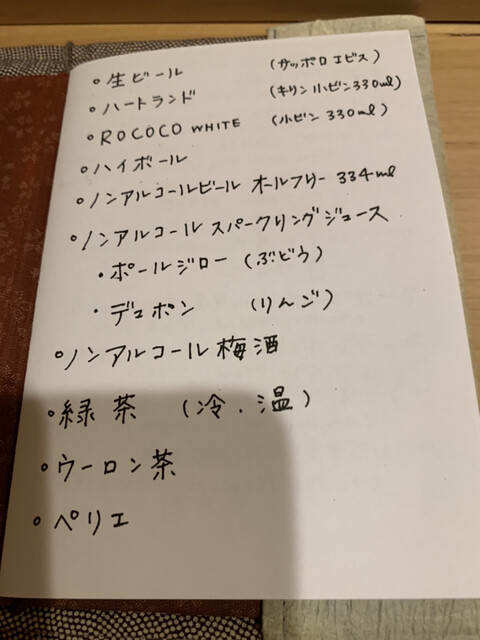 ○生ビール (サッポロエビス)
○ハートランド (キリン小ビン330ml)
○ROCOCO WHITE (小ビン 330ml)
○ハイボール
○ノンアルコールビール オールフリー 334ml
○ノンアルコールスパークリングジュース
・ポールジロー (ぶどう)
・デュポン (りんご)
○ノンアルコール梅酒
○緑茶 (冷・温)
○ウーロン茶
○ペリエ